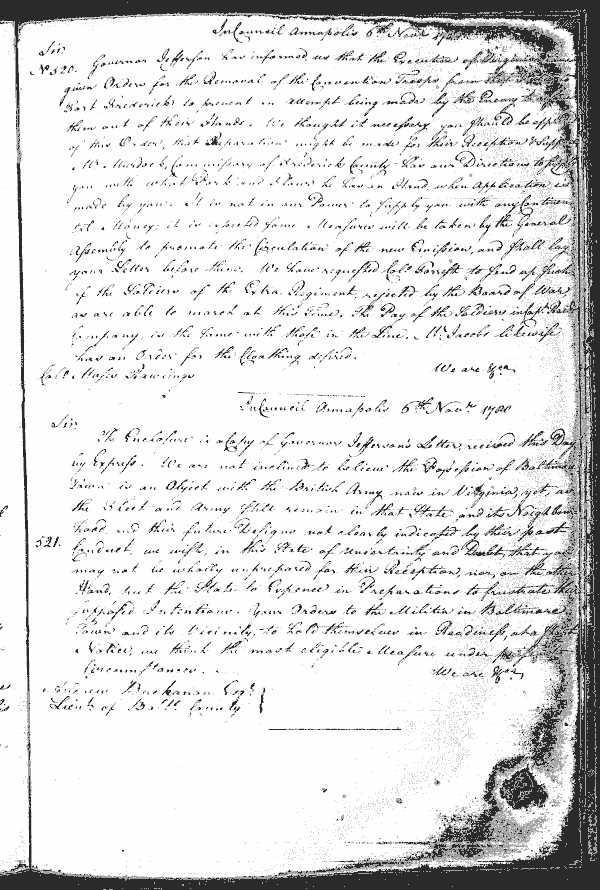 In Council Annapolis 6th Novr 1780
Sir
No 520. Governor Jefferson has informed us that the Executive of Virginia
given Orders for the Removal of the Convention Troops from
Fort Frederick to prevent an attempt being made by the Enemy to
them out of their Hands. We thought it necessary you should be
of this Order, that Preparation might be made for their Reception &
Mr Murdock, Commissary of Frederick County has our Directions to
you with what Pork and Flour he has on Hand when Application is
made by you. It is not in our Power to supply you with any
Money; it is expected some Measures will be taken by the General
Assembly to promote the Circulation of the new Emission, and shall lay
your Letter before them. We have requested Colo Forrest to send up such
of the Soldiers of the Extra Regiment, rejected by the Board of War
as are able to march at this Time. The Pay of the Soldiers in
Company, is the same with those in the Line. Mr Jacobs likewise
has an Order for the Cloathing desired.
We are &ca
Colo Moses Rawlings
In Council Annapolis 6th Novr 1780
Sir
The Enclosure is a Copy of Governor Jefferson's Letter, received this Day
by Express. We are not inclined to believe the Possession of Baltimore
Town is an Object with the British Army now in Virginia, yet, as
the Fleet and Army still remain in that State and its Neighbour-
hood and their future Designs not clearly indicated by their past
521. Conduct, we wish, in this State of uncertainty and Doubt, that you
may not be wholly unprepared for their Reception, nor, on the other
Hand, put the State to Expence in Preparations to frustrate the
supposed Intentions. Your Orders to the Militia in Baltimore
Town and its Vicinity, to hold themselves in Readiness, at a
Notice, we think the most eligible Measure under
Circumstances.
We are &ca
Andrew Buchanan Esqr
Lieut of Balt County